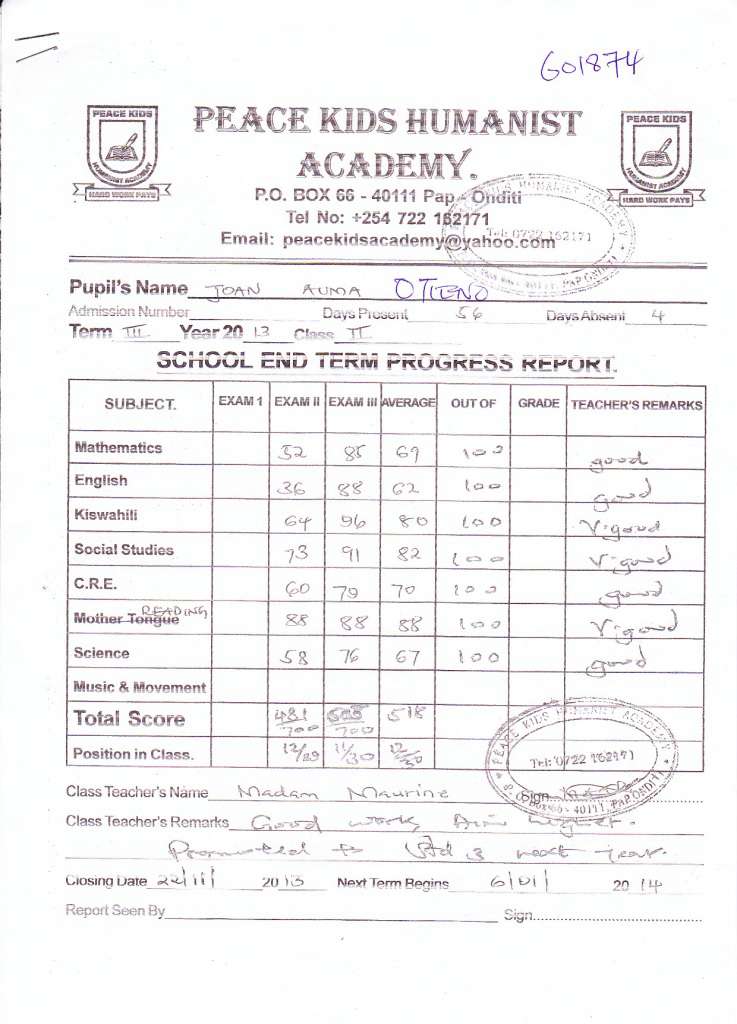 GO1874
PEACE KIDS
HUMANIST ACADEMY
HARD WORK PAYS
PEACE KIDS HUMANIST
ACADEMY.
PEACE KIDS
HUMANIST ACADEMY
HARD WORK PAYS
P.O. BOX 66 - 40111 Pap - Onditi
Tel No: +254 722 162171
Email: peacekidsacademy@yahoo.com
Tel: 0722 162171
Pupil's Name JOAN AUMA OTIENO
Admission Number Days Present 56 Days Absent 4
Term III Year 2013 Class II
SCHOOL END TERM PROGRESS REPORT.
SUBJECT. EXAM 1 EXAM II EXAM III AVERAGE OUT OF GRADE TEACHER'S REMARKS
Mathematics 52 85 69 100 good
English 36 88 62 100 Good
Kiswahili 64 96 80 100 V.good
Social Studies 73 91 82 100 V.good
C.R.E. 60 79 70 100 good
READING
Mother Tongue 88 88 88 100 V.good
Science 58 76 67 100 good
Music & Movement
Total Score 431/700 /700 518
Position in Class. 12/29 11/30 12/30
PEACE KIDS HUMANIST ACADEMY
Tel: 0722 162171
P.O. Box 66 - 40111, PAP ONDITI
Class Teacher's Name Madam Maurine Sign
Class Teacher's Remarks Good work, Aim higher.
Promoted to Std 3 next year.
Closing Date 22/11/ 2013 Next Term Begins 6/01/ 2014
Report Seen By Sign